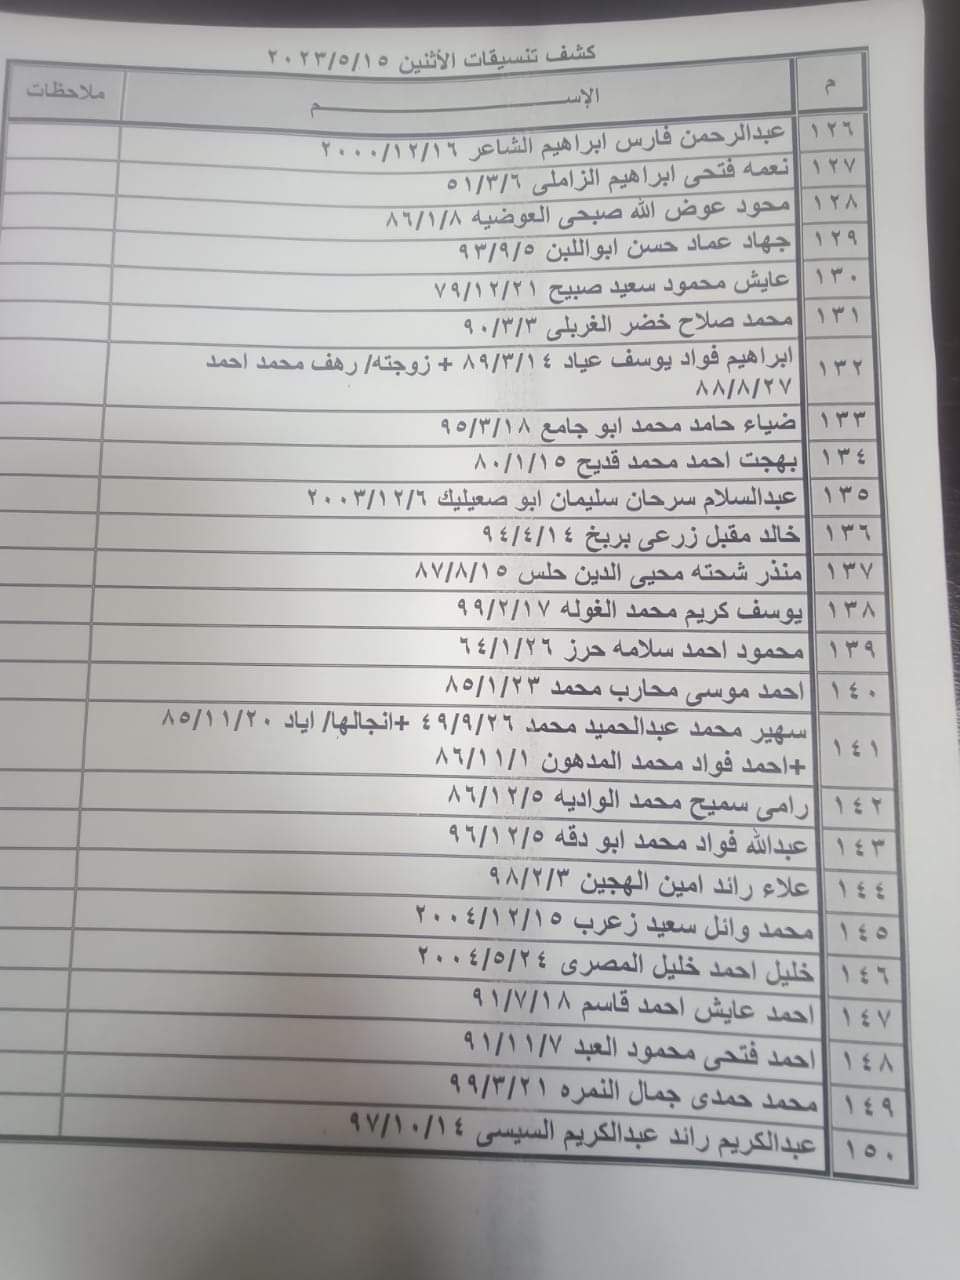 كشف تنسيقات الأثنين ٢٠٢٣/٥/١٥
م الإســـــــــــــــم ملاحظات
١٢٦ عبدالرحمن فارس ابراهيم الشاعر ٢٠٠٠/١٢/١٦
١٢٧ نعمه فتحى ابراهيم الزاملى ٥١/٣/٦
١٢٨ محود عوض الله صبحى العوضيه ٨٦/١/٨
١٢٩ جهاد عماد حسن ابواللبن ٩٣/٩/٥
١٣٠ عايش محمود سعيد صبيح ٧٩/١٢/٢١
١٣١ محمد صلاح خضر الغربلى ٩٠/٣/٣
١٣٢ ابراهيم فواد يوسف عياد ٨٩/٣/١٤ + زوجته/ رهف محمد احمد
٨٨/٨/٢٧
١٣٣ ضياء حامد محمد ابو جامع ٩٥/٣/١٨
١٣٤ بهجت احمد محمد قديح ٨٠/١/١٥
١٣٥ عبدالسلام سرحان سليمان ابو صعيليك ٢٠٠٣/١٢/٦
١٣٦ خالد مقبل زرعى بربخ ٩٤/٤/١٤
١٣٧ منذر شحته محيى الدين حلس ٨٧/٨/١٥
١٣٨ يوسف كريم محمد الغوله ٩٩/٢/١٧
١٣٩ محمود احمد سلامه حرز ٦٤/١/٢٦
١٤٠ احمد موسى محارب محمد ٨٥/١/٢٣
١٤١ سهير محمد عبدالحميد محمد ٤٩/٩/٢٦ +انجالها/ اياد ٨٥/١١/٢٠
+احمد فواد محمد المدهون ٨٦/١١/١
١٤٢ رامى سميح محمد الواديه ٨٦/١٢/٥
١٤٣ عبدالله فواد محمد ابو دقه ٩٦/١٢/٥
١٤٤ علاء رائد امين الهجين ٩٨/٢/٣
١٤٥ محمد وائل سعيد زعرب ٢٠٠٤/١٢/١٥
١٤٦ خليل احمد خليل المصرى ٢٠٠٤/٥/٢٤
١٤٧ احمد عايش احمد قاسم ٩١/٧/١٨
١٤٨ احمد فتحى محمود العبد ٩١/١١/٧
١٤٩ محمد حمدى جمال النمره ٩٩/٣/٢١
١٥٠ عبدالكريم رائد عبدالكريم السيسى ٩٧/١٠/١٤